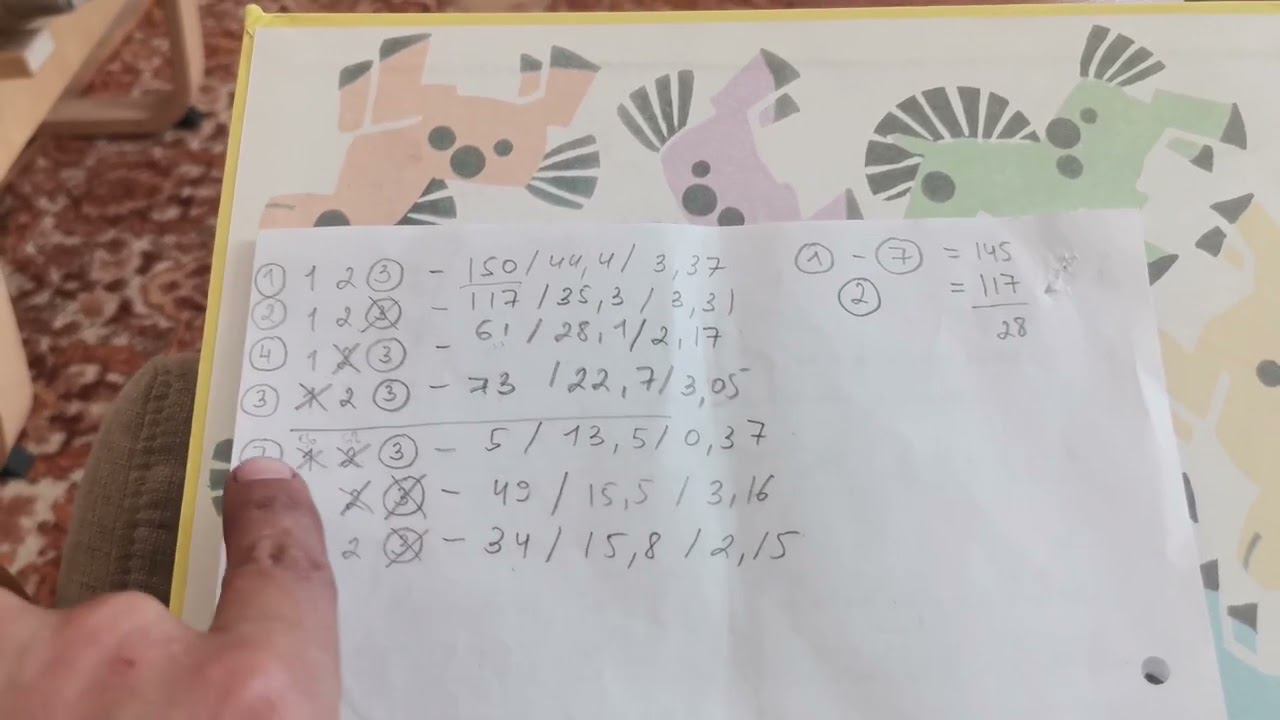 ① 1 2 ③ - 150 / 44,4 / 3,37
② 1 2 ③ - 117 / 35,3 / 3,31
④ 1 2 ③ - 61 / 28,1 / 2,17
③ 1 2 ③ - 73 / 22,7 / 3,05
⑦ 1 2 ③ - 5 / 13,5 / 0,37
2 ③ - 49 / 15,5 / 3,16
2 ③ - 34 / 15,8 / 2,15
① - ⑦ = 145
② = 117
28